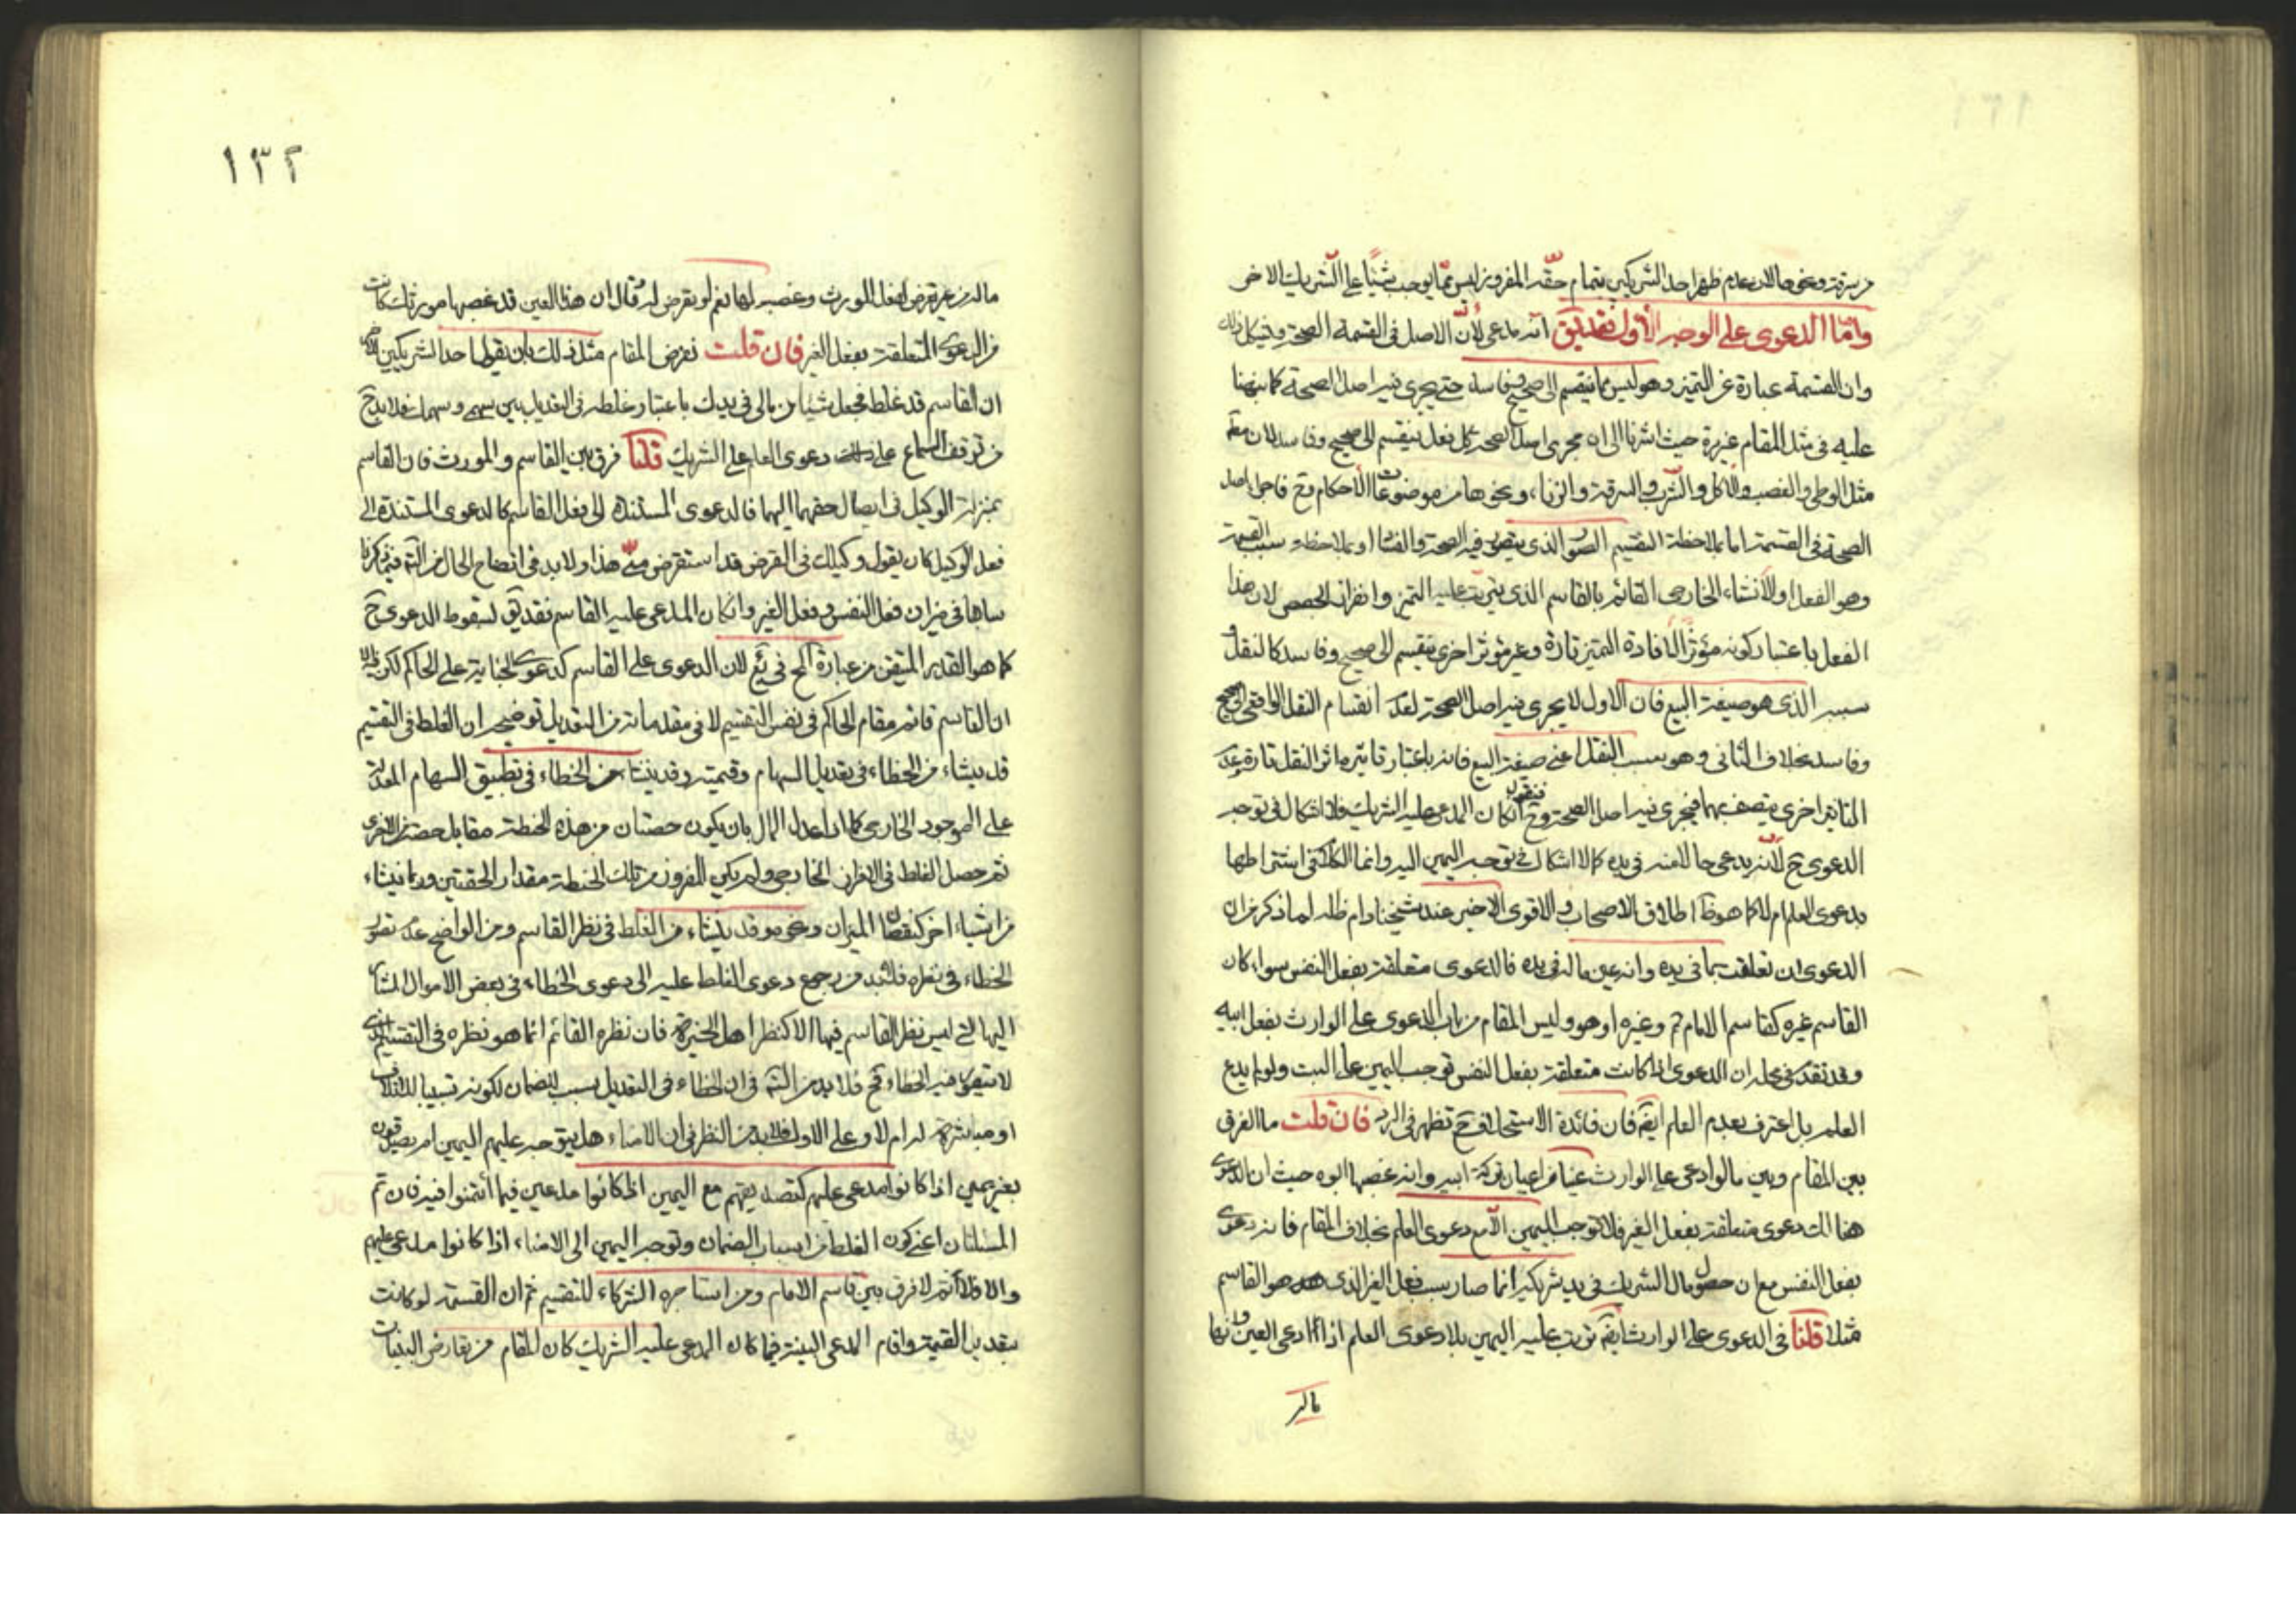 من سرقة ونحوها لان عدم ظهر احد الشريكين بتمام حقه المفروز ليس مما يوجب شيئا على الشريك الاخر
واما الدعوى على الوجه الأول فقد يق انه مدعى لأن الاصل في القسمة الصحة ويشكل ذلك
وان القسمة عبارة عن التميز وهو ليس مما ينقسم الى صحيح وفاسد حتى يجرى فيه اصل الصحة كما نبهنا
عليه في مثل المقام غير مرة حيث اشرنا الى ان مجرى اصل الصحة كل فعل ينقسم الى صحيح وفاسد لا ن مطم
مثل الوطى والغصب والأكل والشرب والسرقة والزناء ونحوها من موضوعات الأحكام وح فاجراء اصل
الصحة في القسمة اما بملاحظة التقسيم الصورى الذى يتصور فيه الصحة والفساد او بملاحظة سبب القسمة
وهو الفعل او الأنشاء الخارجى القائم بالقاسم الذى يترتب عليه التميز وانفراز الحصص لان هذا
الفعل باعتبار كونه مؤثرا لأفادة التميز تارة وغير مؤثر اخرى ينقسم الى صحيح وفاسد كالنقل و
سببه الذى هو صيغة البيع فان الاول لا يجرى فيه اصل الصحة لعدم انقسام النقل الواقعى الى صحيح
وفاسد بخلاف الثانى وهو سبب النقل اعنى صيغة البيع فانه باعتبار تاثيره اثر النقل تارة وعدم
التاثير اخرى يتصف بهما فيجرى فيه اصل الصحة وح فنقول ان كان المدعى عليه الشريك فلا اشكال في توجه
الدعوى ح لأنه يدعى مالا منه في يده كما لا اشكال في توجه اليمين اليه وانما الكلام في اشتراطها
بدعوى العلم ام لا كما هو ظ اطلاق الاصحاب والاقوى الاخير عند شيخنا دام ظله لما ذكر من ان
الدعوى ان تعلقت بما في يده وانه عين ماله في يده فالدعوى متعلقة بفعل النفس سواء كان
القاسم غيره كقاسم الامام ع وغيره او هو وليس المقام من باب الدعوى على الوارث بفعل ابيه
وقد تقدم في محله ان الدعوى اذا كانت متعلقة بفعل النفس توجب اليمين على البت ولو لم يدع
العلم بل اعترف بعدم العلم ايضا فان فائدة الاستحلاف ح تظهر في الرد فان قلت ما الفرق
بين المقام وبين ما لو ادعى على الوارث عينا من اعيان تركة ابيه وانه غصبها ابوه حيث ان الدعوى
هناك دعوى متعلقة بفعل الغير فلا توجب اليمين الا مع دعوى العلم بخلاف المقام فانه دعوى
بفعل النفس مع ان حصول مال الشريك في يد شريكه انما صار بسبب فعل الغير الذى هو القاسم
مثلا قلنا في الدعوى على الوارث ايضا نرتب عليه اليمين بلا دعوى العلم اذا ادعى العين وانها
ماله
١٣٢
ماله من غير تعرض لفعل المورث وغصبه لها نعم لو تعرض له وقال ان هذا العين قد غصبها مورثك كانت
من الدعوى المتعلقة بفعل الغير فان قلت نفرض المقام مثل ذلك بان يقول احد الشريكين للاخر
ان القاسم قد غلط فجعل شيئا من مالى في يدك باعتبار غلطه في التعديل بين سهمى وسهمك فلا بد ح
من توقف السماع على دعوى العلم على الشريك قلنا فرق بين القاسم والمورث فان القاسم
بمنزلة الوكيل في ايصال حقهما اليهما فالدعوى المستندة الى فعل القاسم كالدعوى المستندة الى
فعل الوكيل كان يقول وكيلك في القرض قد استقرض منى هذا ولا بد في اتضاح الحال من التأمل فيما ذكرنا
سابقا في ميزان فعل النفس وفعل الغير وان كان المدعى عليه القاسم فقد يق لسقوط الدعوى ح
كما هو القدر المتيقن من عبارة المح في يع لان الدعوى على القاسم كدعوى الخيانة على الحاكم لكن فيه
ان القاسم قائم مقام الحاكم في نفس التقسيم لا في مقدماته من التعديل توضيحه ان الغلط في التقسيم
قد ينشاء من الخطاء في تعديل السهام وقيمته وقد ينشاء من الخطاء في تطبيق السهام المعدلة
على الموجود الخارجى كما ان اعدل المال بان يكون حصتان من هذه الحنطة مقابل حصة من الاخرى
ثم حصل الغلط في الافراز الخارجى ولم يكن المفروز من تلك الحنطة مقدار الحقتين وربما ينشاء
من اشياء اخر كنقصان الميزان ونحوه وقد ينشاء من الغلط في نظر القاسم ومن الواضح عدم تصور
الخطاء في نظره فلا بد من رجوع دعوى الغلط عليه الى دعوى الخطاء في بعض الامور المشار
اليها التى ليس نظر القاسم فيها الا كنظر اهل الخبرة فان نظره القائم انما هو نظره في التقسيم الذى
لا يتصور فيه الخطاء وح فلا بد من التأمل في ان الخطاء في التعديل سبب للضمان لكونه تسبيبا للاتلاف
او مباشرة له ام لا وعلى الاول فلا بد من النظر في ان الامناء هل يتوجه عليهم اليمين ام يصدقون
بغير يمين اذا كانوا مدعى عليهم كتصديقهم مع اليمين اذا كانوا مدعين فيما أئتمنوا فيه فان تم
المسئلتان اعنى كون الغلط من اسباب الضمان وتوجه اليمين الى الامناء اذا كانوا مدعى عليهم
والا فلا ثم لا فرق بين قاسم الامام ومن استاجره الشركاء للتقسيم ثم ان القسمة لو كانت
بتعديل القيمة واقام المدعى البينة فيما كان المدعى عليه الشريك كان المقام من تعارض البينات